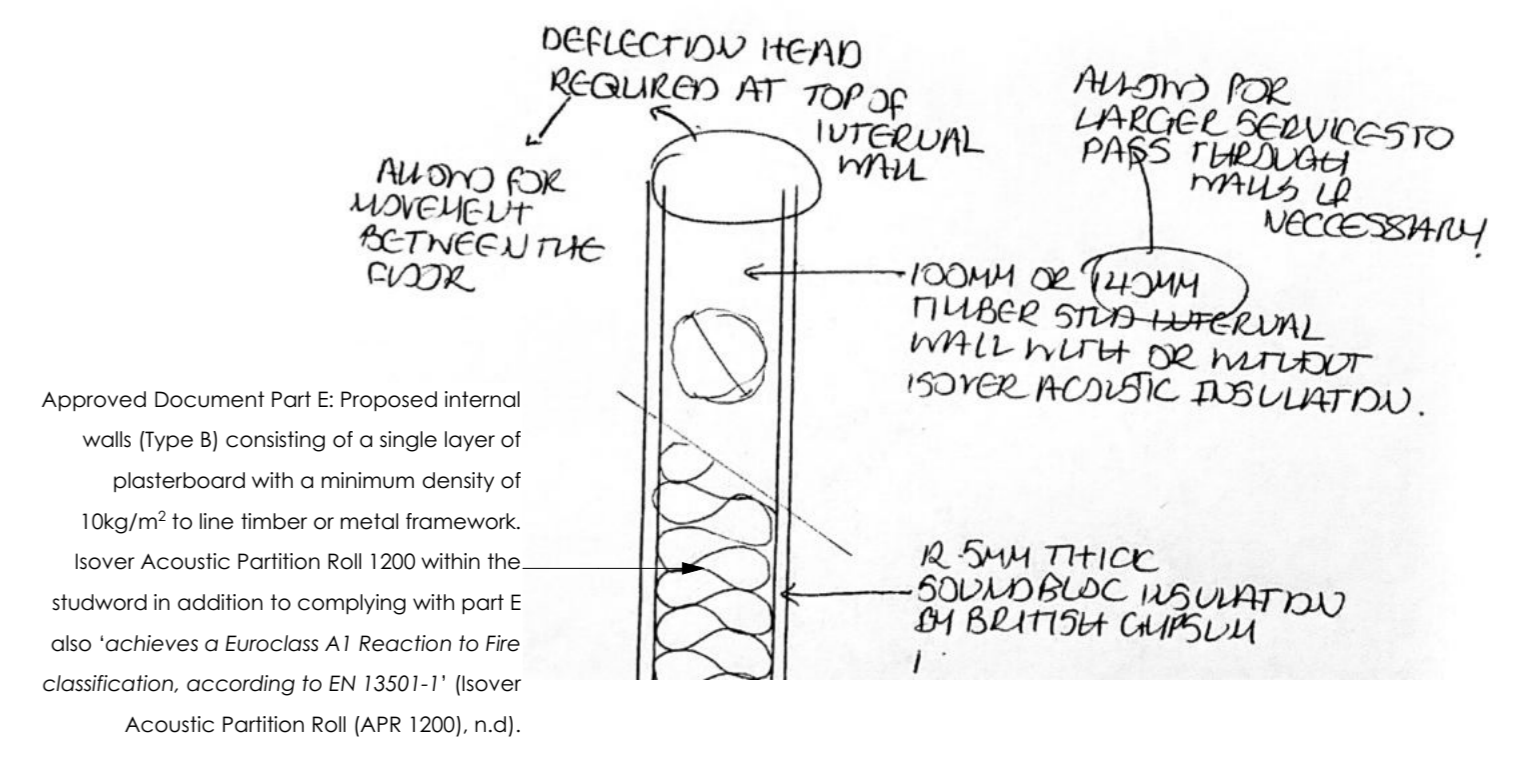 DEFLECTION HEAD
REQUIRED AT TOP OF
INTERNAL
WALL
ALLOWS FOR
MOVEMENT
BETWEEN THE
FLOOR
ALLOWS FOR
LARGER SERVICES TO
PASS THROUGH
WALLS IF
NECCESSARY!
100MM OR 140MM
TIMBER STUD INTERNAL
WALL WITH OR WITHOUT
ISOVER ACOUSTIC INSULATION.
Approved Document Part E: Proposed internal
walls (Type B) consisting of a single layer of
plasterboard with a minimum density of
10kg/m² to line timber or metal framework.
Isover Acoustic Partition Roll 1200 within the
studword in addition to complying with part E
also ‘achieves a Euroclass A1 Reaction to Fire
classification, according to EN 13501-1’ (Isover
Acoustic Partition Roll (APR 1200), n.d).
12.5MM THICK
SOUNDBLOC INSULATION
BY BRITISH GYPSUM